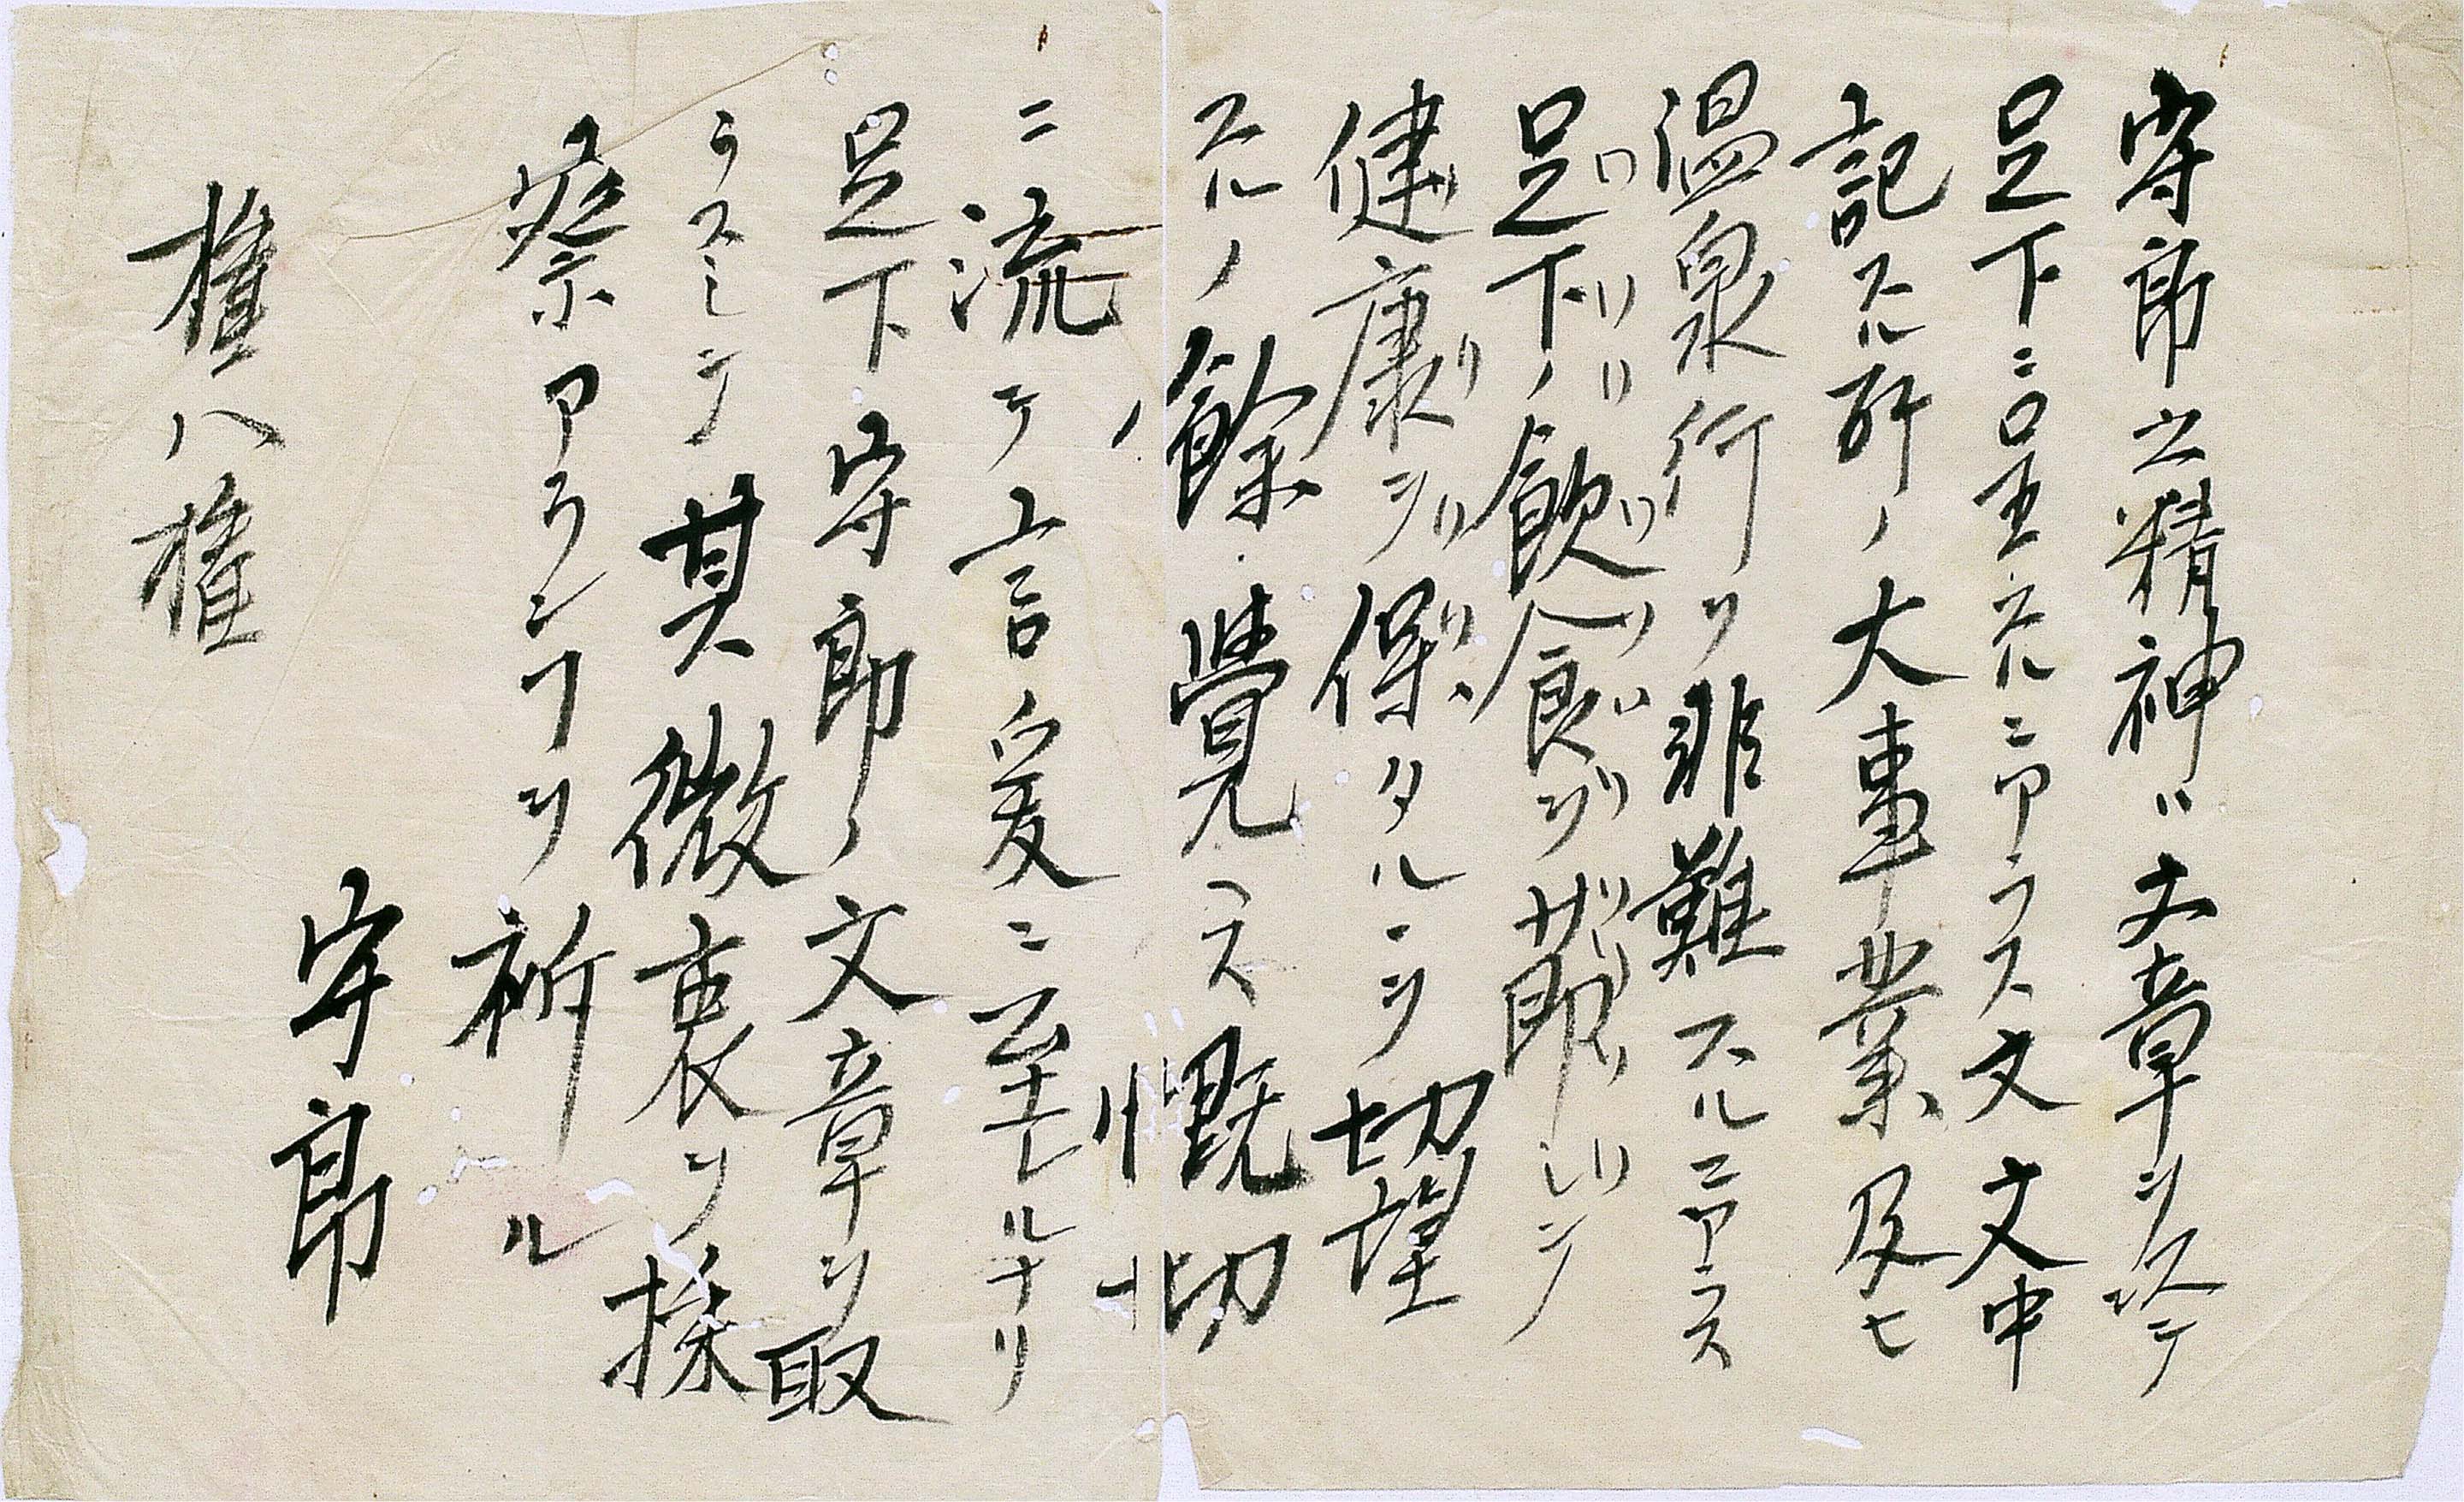 守郎之精神ハ文章ヲ以テ
足下ニ呈スルニアラス文文中
記スル所ノ大事業及ヒ
温泉行ヲ非難スルニアラス
足下ノ飲食ヲ節シテ
健康ヲ保タルヲ切望
スルノ餘覺ヘス慨切
ニ流テ言爰ニ至レルナリ
足下守郎ノ文章ヲ取
ラスシテ其微衷ヲ採
察アランヿヲ祈ル
守郎
権八権